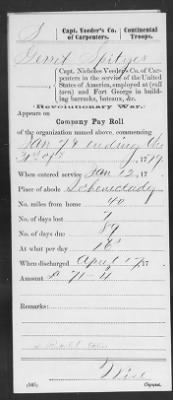 S | Capt. Veeder's Co. of Carpenters. | Continental Troops.
Gerrit Spitzer
Capt. Nicholes Veeder's Co. of Carpenters in the service of the United States of America, employed at (suffers) and Fort George in building barracks, bateaux, &c.
Revolutionary War.
Appears on
Company Pay Roll
of the organization named above, commencing
Jan 7 & ending
, 1779.
When entered service Jan 12, 17
Place of abode Schenectady
No. miles from home 40
No. of days lost 7
No. of days due: 89
At what per day 16s
When discharged April 17, 17
Amount £ 71-4
Remarks:
Copyist.